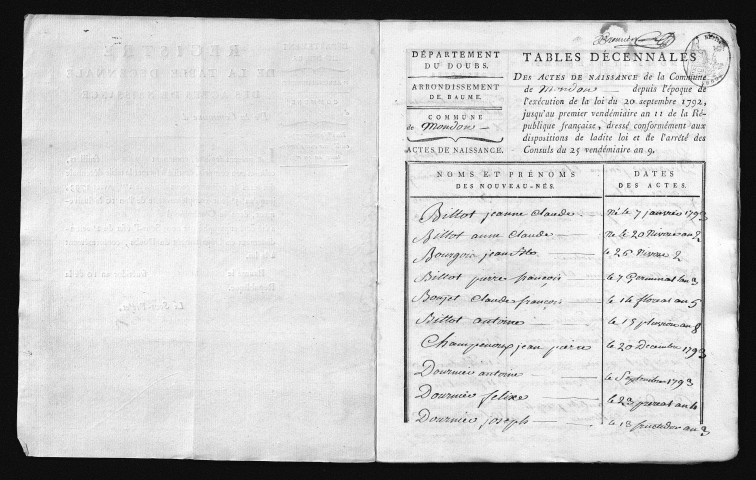 DÉPARTEMENT
DU DOUBS.
ARRONDISSEMENT
DE BAUME.
COMMUNE
de Mondon
ACTES DE NAISSANCE.
TABLES DÉCENNALES
DES ACTES DE NAISSANCE de la Commune
de Mondon depuis l'époque de
l'exécution de la loi du 20 septembre 1792,
jusqu'au premier vendémiaire an 11 de la Ré-
publique française, dressé conformément aux
dispositions de ladite loi et de l'arrêté des
Consuls du 25 vendémiaire an 9.
NOMS ET PRÉNOMS
DES NOUVEAU-NÉS.
DATES
DES ACTES.
Billot jeanne Claude né le 7 janvier 1793
Billot anne Claude né le 20 Nivose an 2
Bourgoin jean le 26 Nivose 2
Billot pierre françois le 7 Germinal an 3
Bonjet Claude françois le 14 floreal an 5
Billot antoine le 15 pluviose an 8
Champenoux jean pierre le 20 Decembre 1793
Dournier antoine le Septembre 1793
Dournier felixe le 23 prereal an 4
Dournier joseph le 13 fructidor an 3